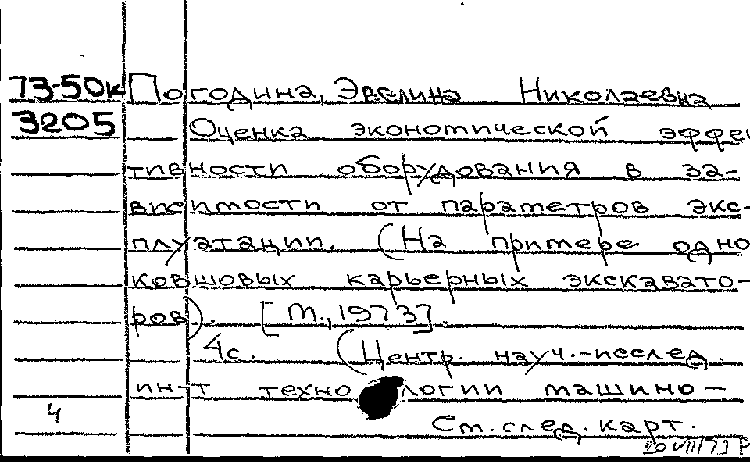 73-50к Погодина, Эвелина Николаевна
3205 Оценка экономической эффек
тивности оборудования в за-
висимости от параметров экс-
плуатации. (На примере одно
ковшовых карьерных экскавато-
ров). [М., 1973].
4с. (Центр. науч.-исслед.
ин-т технологии машино-
4 См. след. карт.